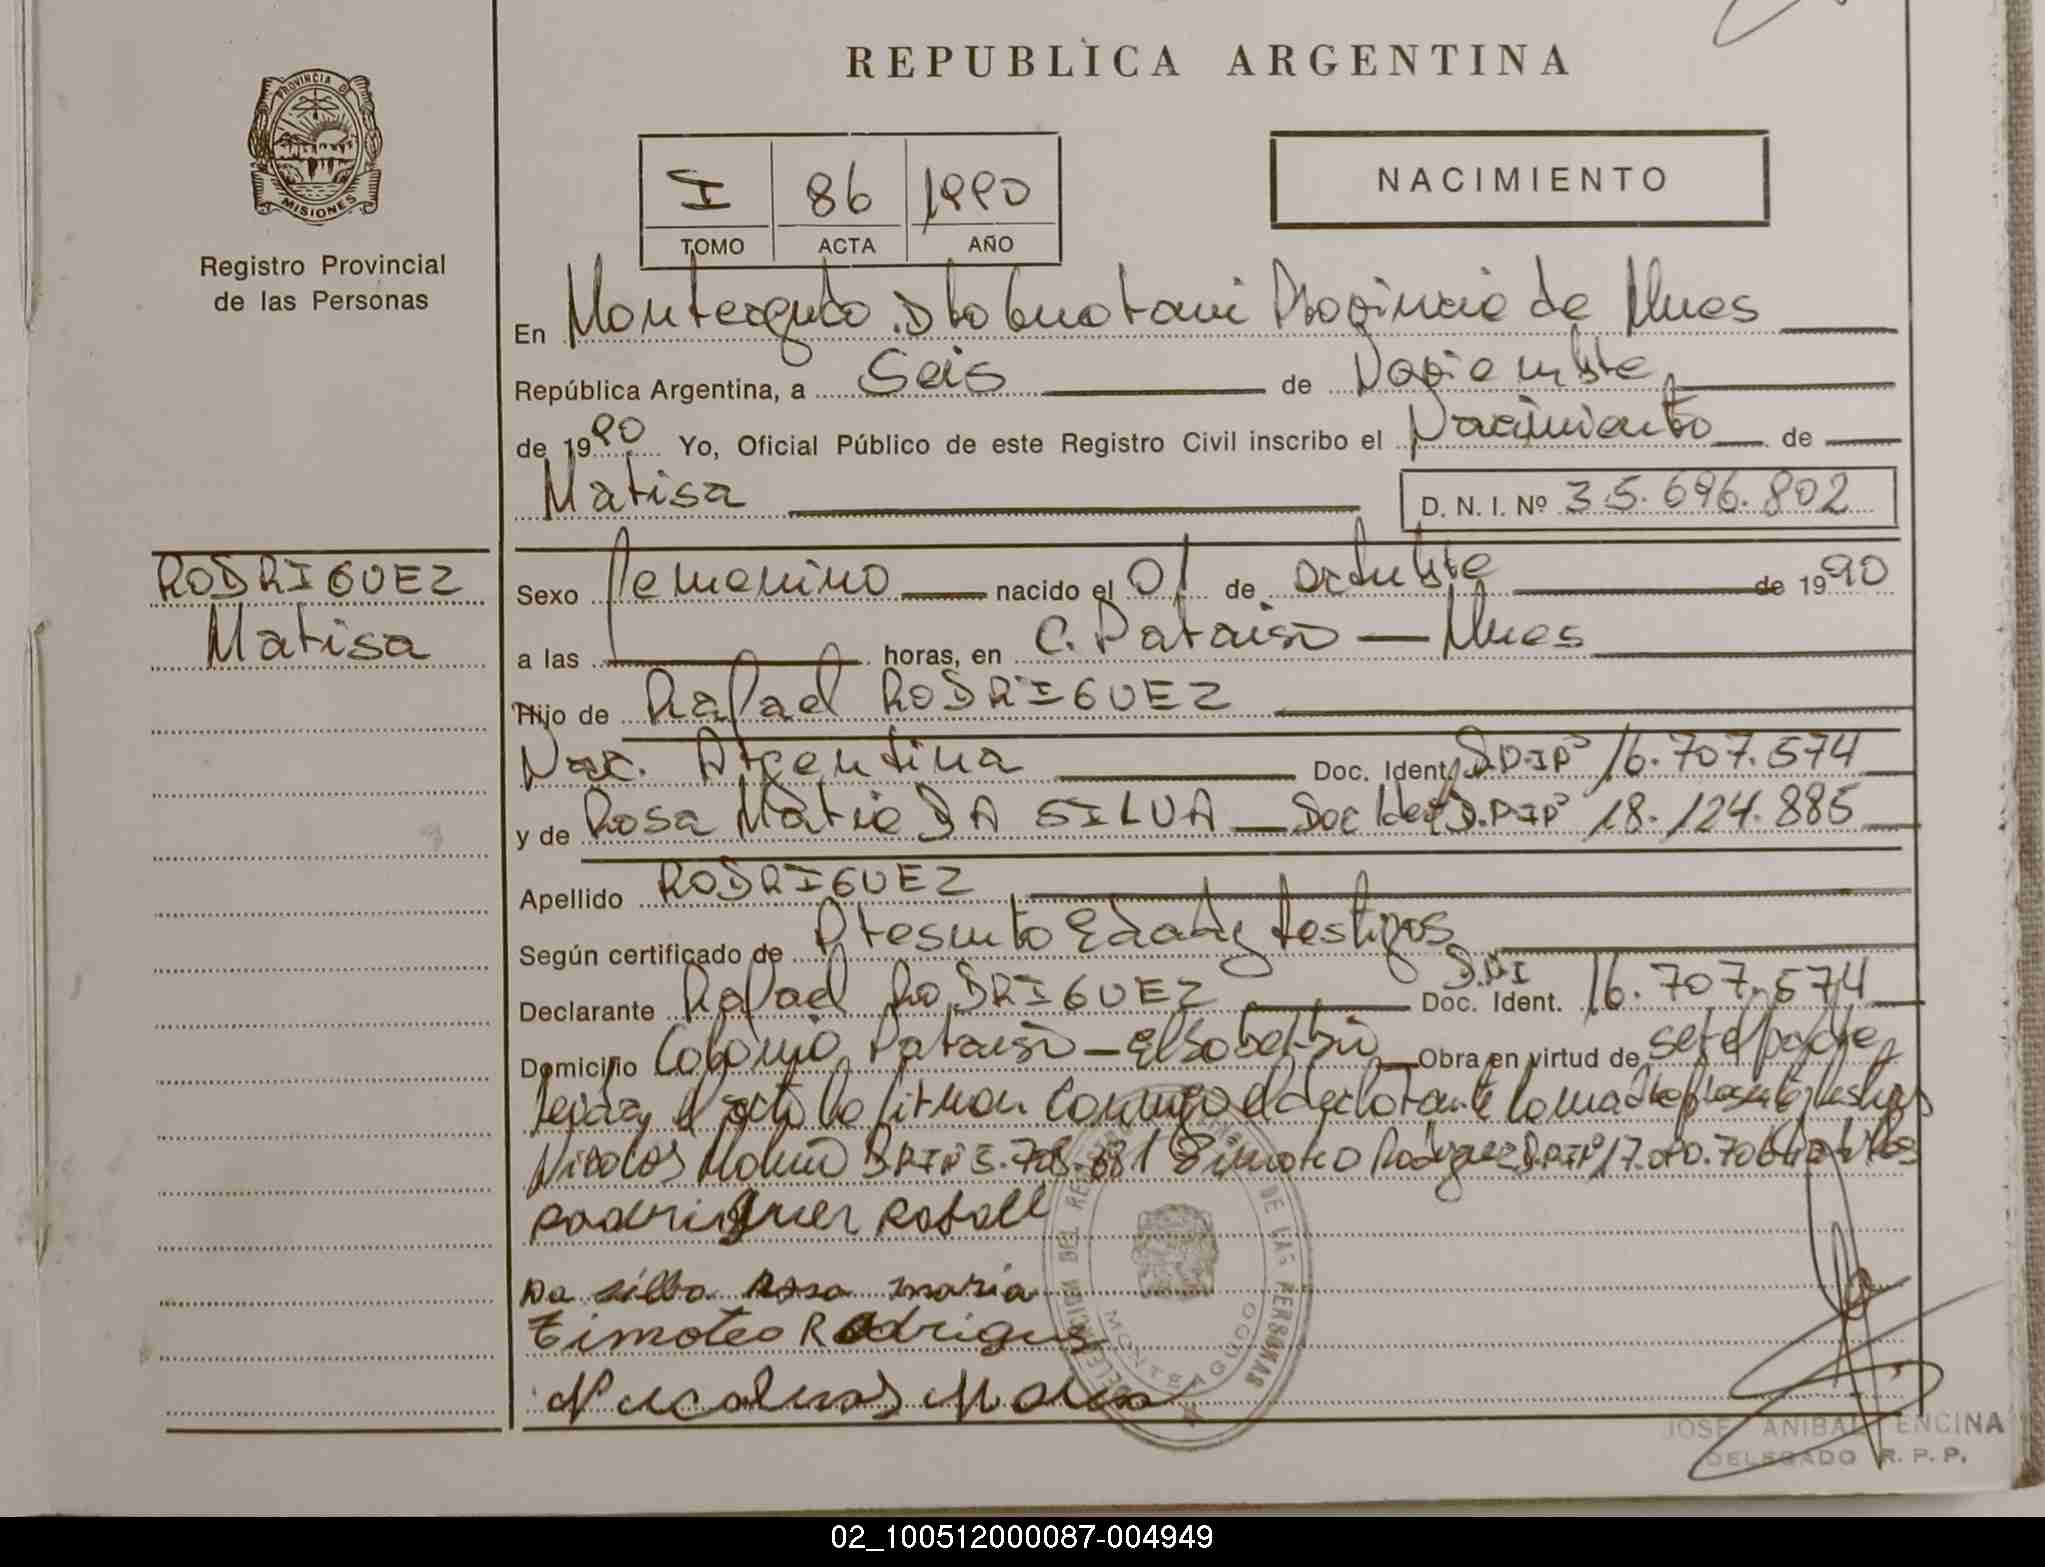 REPUBLICA ARGENTINA
PROVINCIA DE
MISIONES
Registro Provincial
de las Personas
I 86 1990
TOMO ACTA AÑO
NACIMIENTO
En Monteagudo. Dto Guarani Provincia de Mnes
República Argentina, a Seis de Noviembre
de 1990 Yo, Oficial Público de este Registro Civil inscribo el Nacimiento de
Marisa
D. N. I. Nº 35.696.802
RODRIGUEZ
Marisa
Sexo Femenino nacido el 01 de octubre de 1990
a las horas, en C. Paraiso — Mnes
Hijo de Rafael RODRIGUEZ
Nac. Argentina Doc. Ident. D.N.I Nº 16.707.574
y de Rosa Maria DA SILVA — Doc Ident D.N.I Nº 18.124.885
Apellido RODRIGUEZ
Según certificado de Presunto Edad y testigos
Declarante Rafael RODRIGUEZ Doc. Ident. D.N.I 16.707.574
Domicilio Colonia Paraiso — El Soberbio — Obra en virtud de ser el padre
Leida el acta la firman conmigo el declarante la madre presente y testigos
Nicolas D.N.I Nº Timoteo Rodriguez D.N.I Nº
Rodriguez Rafael
Da silba Rosa maria
Timoteo Rodrigues
DELEGACION DEL REGISTRO DE LAS PERSONAS
MONTEAGUDO
JOSE ANIBAL ENCINA
DELEGADO R. P. P.
02_100512000087-004949